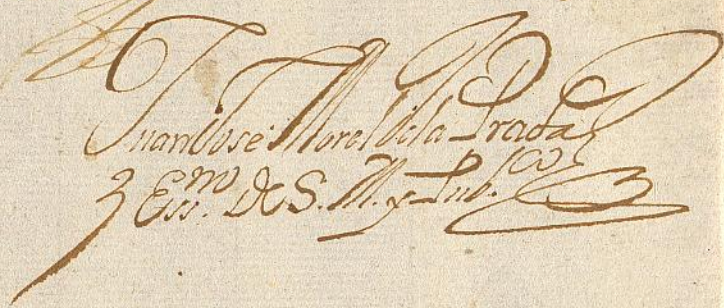 Juan Jose Morel dela Prada
Ess.no De S. M. y Pub.co